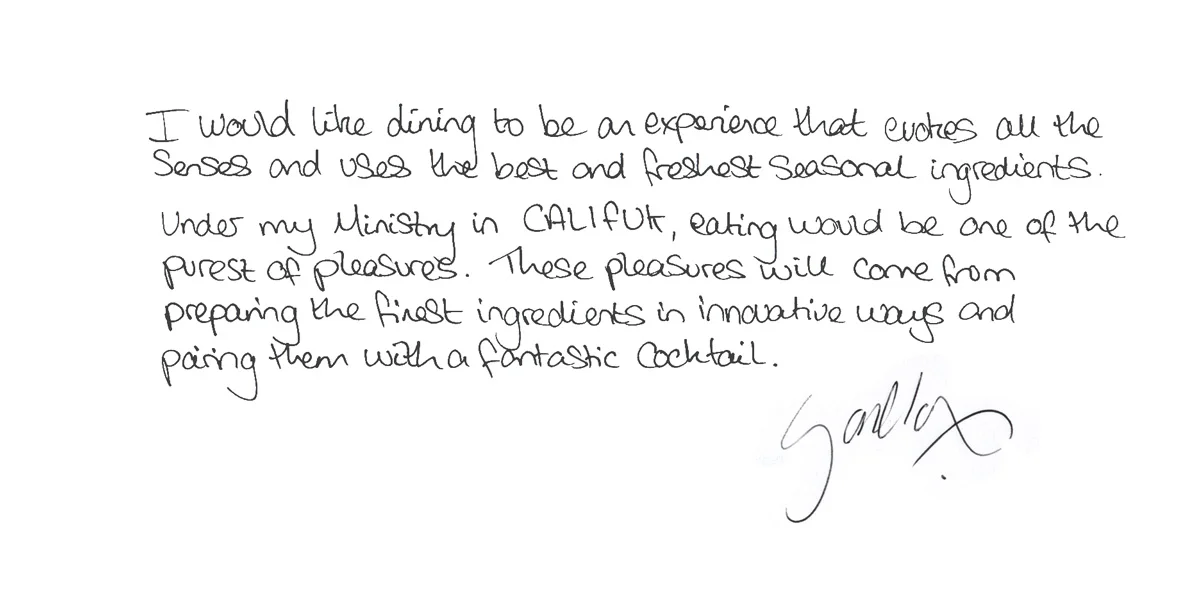 I would like dining to be an experience that evokes all the
Senses and uses the best and freshest seasonal ingredients.
Under my Ministry in CALIFUK, eating would be one of the
purest of pleasures. These pleasures will come from
preparing the finest ingredients in innovative ways and
pairing them with a fantastic Cocktail.